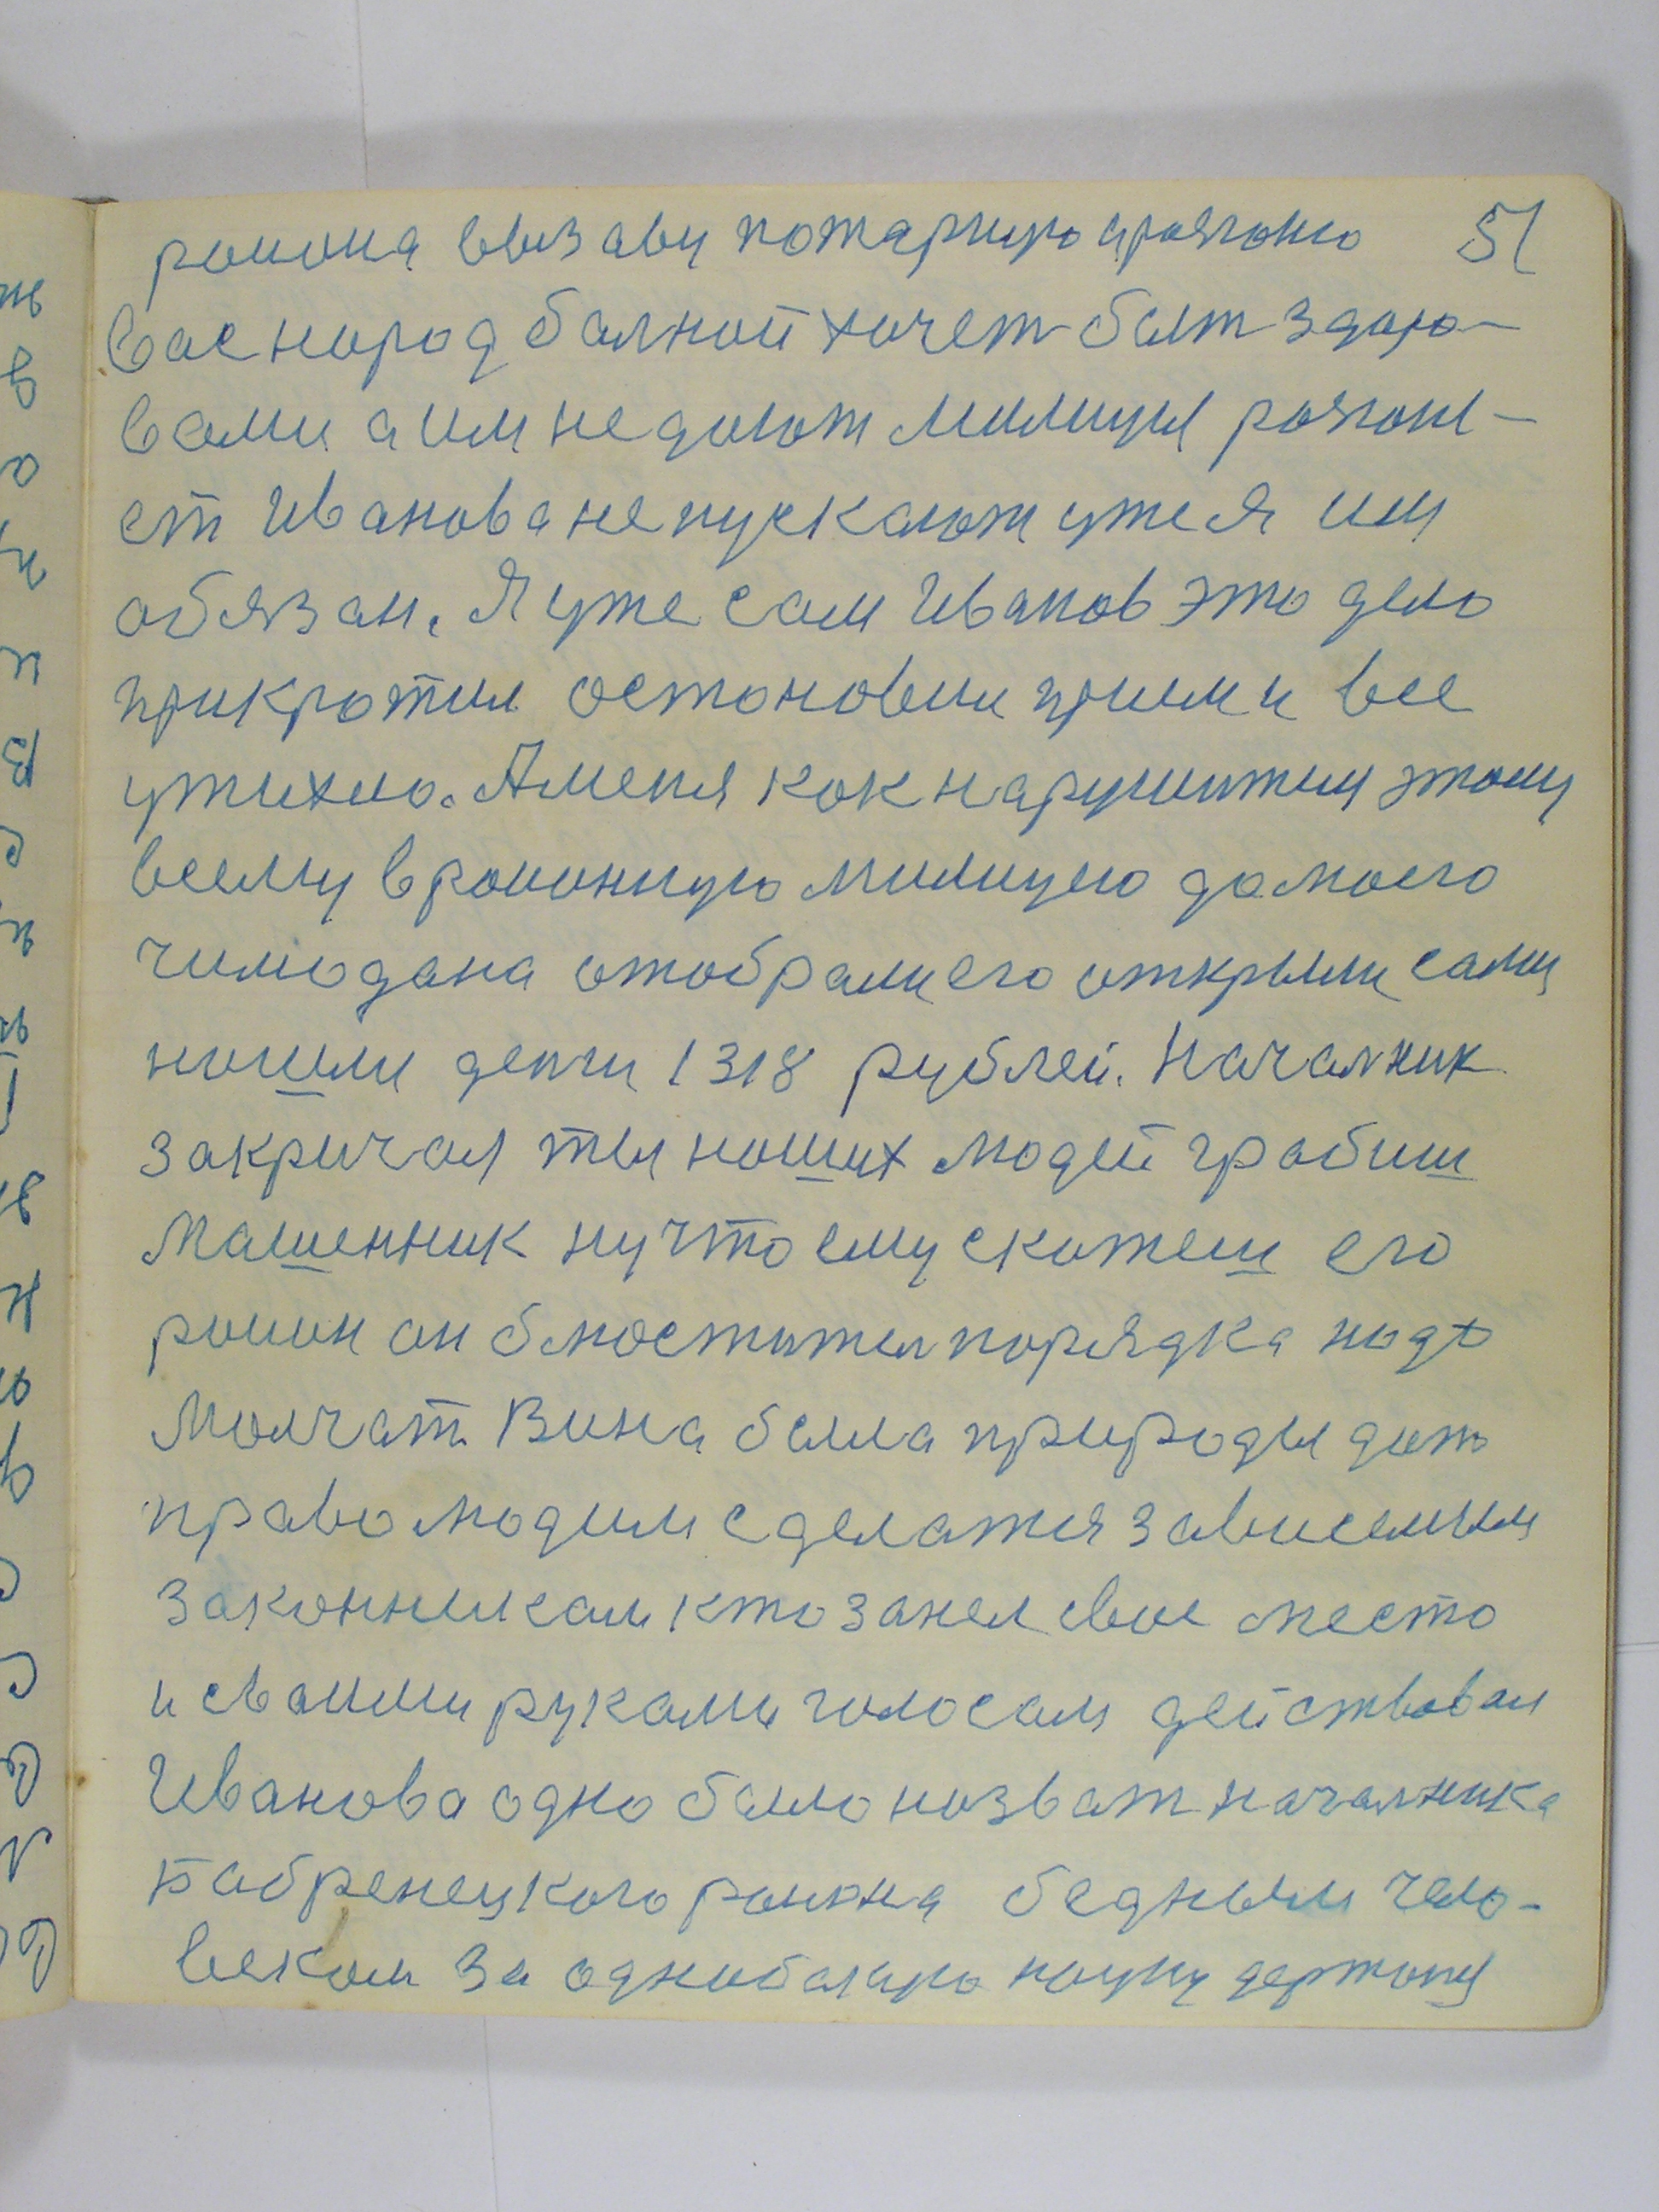 роиона вызаву пожарную розгоню 51
вас народ балной хочет быт здоро-
вами а им недоют милицыя розгон-
ет Иванова не пускают уже я им
обязан. Я уже сам Иванов это дело
прикротил остоновил прием и все
утихло. А меня как нарушителя этому
всему в роионную милицею до моего
чимодана отобрали его открыли сами
ношли денги 1318 рублей. Началник
закричал ты нoших людей гробиш
Машенник ну что ему скажеш его
роион он блюститил порядка нодо
Молчат. Вина была природы дат
право людим сделатся зависемым
законникам кто занел свое место
и сваими руками голосам действовал
Иванова одно было назват началника
Бабренецкого роиона бедным чело-
веком за однобакую науку держоную